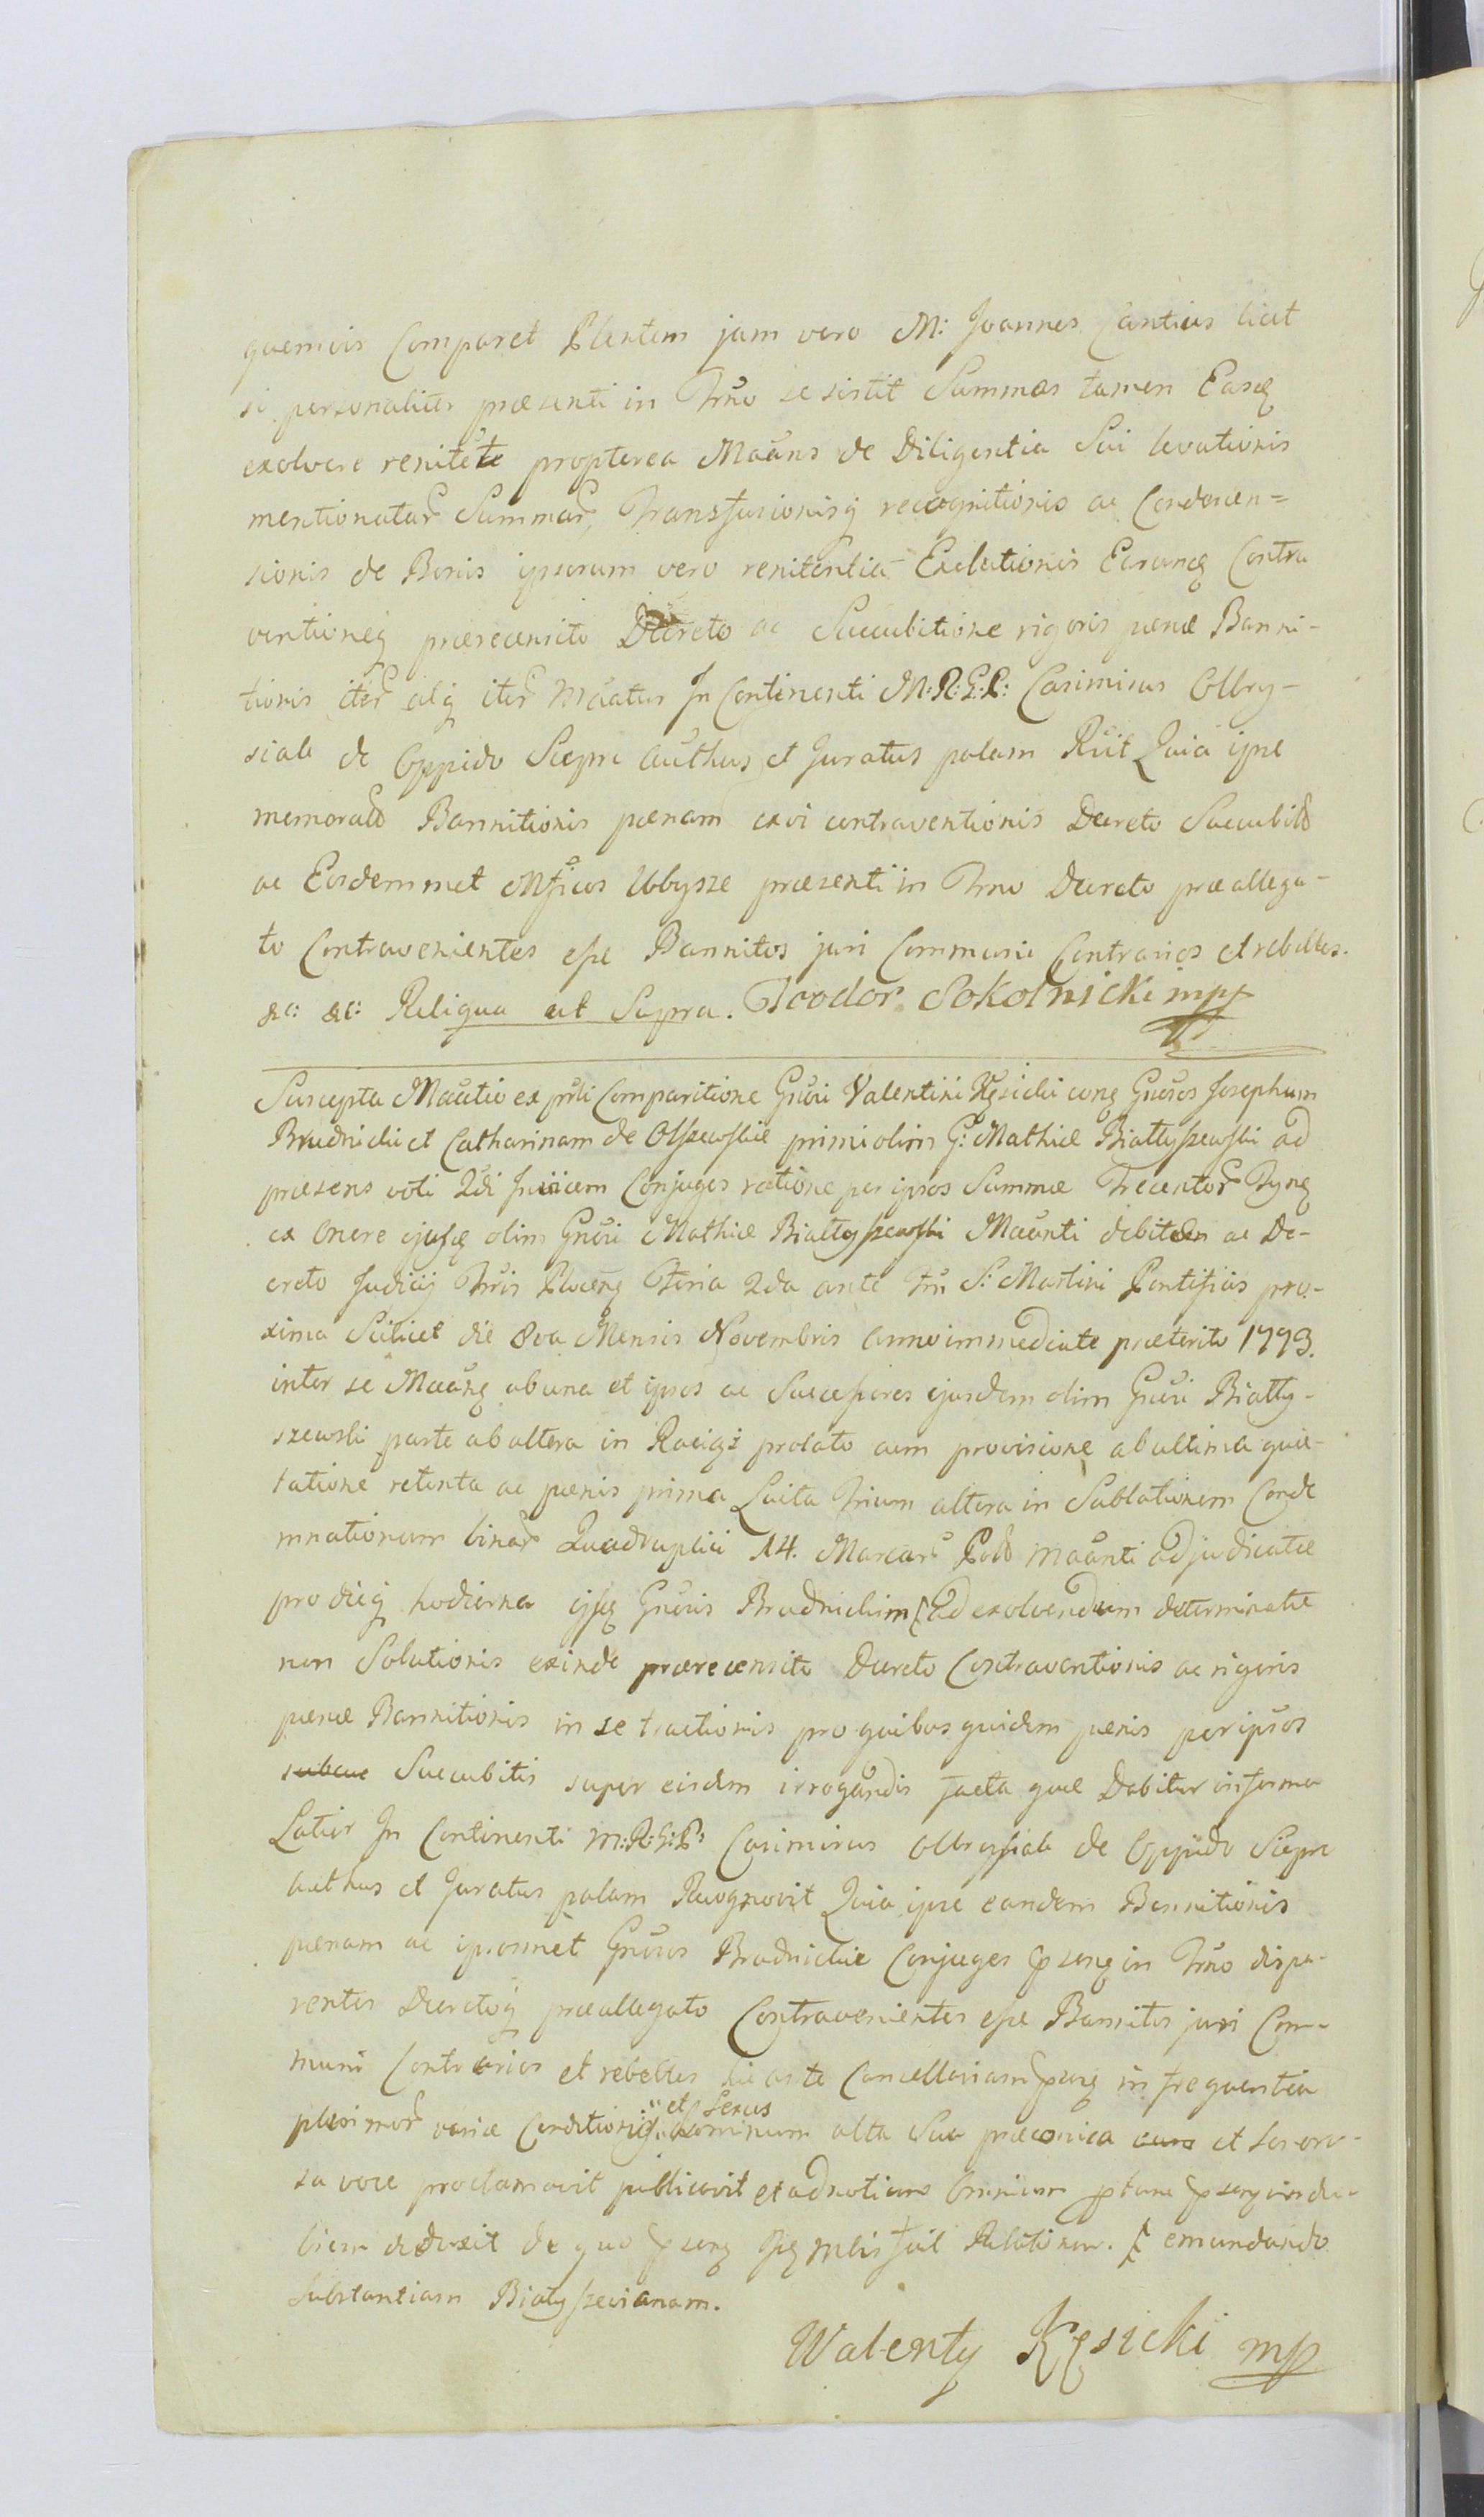 quemvis Comparet Plentem jam vero M: Joannes Cantius licet
si personaliter præsenti in Trno se sistit Summas tamen Easq
exolvere renitete propterea Maans de Diligentia Sui levationis
mentionatar Summar, Transfusionisq recognitionis ac Condescen=
sionis de Bonis ipsorum vero renitentia Exolutionis Earumq Contra
ventioneq præsecensito Decreto ac Succubitione rigoris pænæ Banni-
tionis iter aliq iter Maatus In Continenti M:R:G:P: Casimirus Olbry-
siak de Oppido Siepre Authus et Juratus palam Rvit Quia ipse
memorato Bannitionis pænam exvi contraventionis Decreto Succubito
ac Eosdemmet Mficos Ubysze præsenti in Trno Decreto præallega-
to Contravenientes esse Bannitos juri Communi Contrarios et rebelles.
&c: &c: Reliqua ut Supra. Teodor Sokolnicki mpp
Suscepta Maatio ex prti Comparitione Gnosi Valentini Kęsicki conq Gnosos Josephum
Brudnicki et Catharinam de Olszewskie primi olim G: Mathiæ Białłyszewski ad
præsens voti 2di Invicem Conjuges ratione per ipsos Summæ Trecentor Tynq
ex Onere ejusq olim Gnosi Mathiæ Białłyszewski Maanti debitæ ac De-
creto Judicij Trris Plocenq Feria 2da ante Ftm S: Martini Pontificis pro-
xima Scilicet die 8va Mensis Novembris Anno immediate præterito 1793.
inter se Maanq ab una et ipsos ac Sucessores ejusdem olim Gnosi Białły-
szewski parte ab altera in Raciąż prolato cum provisione ab ultima quie-
tatione retenta ac pænis prima Luita Trium altera in Sublationem Conde
mnationum binar Quadruplici 14. Marcar Polo Maanti adjudicatæ
pro dieq hodierna ijsq Gnosis Brudnickim ad exolvendum determinatæ
non Solutionis exinde prærecensito Decreto Contraventionis ac rigoris
pænæ Bannitionis in se tractionis pro quibus quidem pænis per ipsos
subcue Succubitis super eisdem irrogandis facta quæ Dabitur in forma
Latior In Continenti M:R:G:P: Casimirus Olbrysiak de Oppido Siepre
Authus et Juratus palam Recognovit Quia ipse eandem Bannitionis
pænam ac ipsosmet Gnosos Brudnickie Conjuges psenq in Trno dispa-
rentes Decretoq præallegato Contravenientes esse Bannitos juri Com-
muni Contrarios et rebelles hic ante Cancellariam psenq in frequentia
et Sexus
plurimor variæ Conditionis hominum alta Sua præconica cura et Sonoro-
sa voce proclamavit publicavit et ad notitiam Omnium ptunc psenq indu-
biam deduxit de quo psenq Offq Mlis fecit Relationem. emundando
substantiam Białyszevianam.
Walenty Kęsicki mp